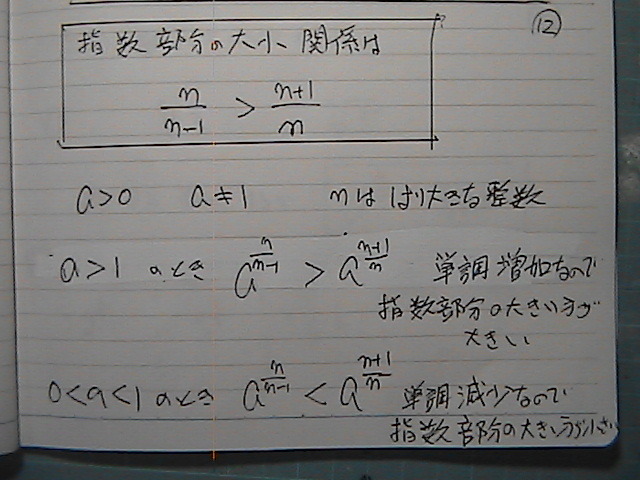 ⑫
指数部分の大小関係は
n/(n-1) > (n+1)/n
a>0 a≠1 nは1より大きな整数
a>1 のとき a^(n/(n-1)) > a^((n+1)/n) 単調増加なので
指数部分の大きい方が
大きい
0<a<1のとき a^(n/(n-1)) < a^((n+1)/n) 単調減少なので
指数部分の大きい方が小さい